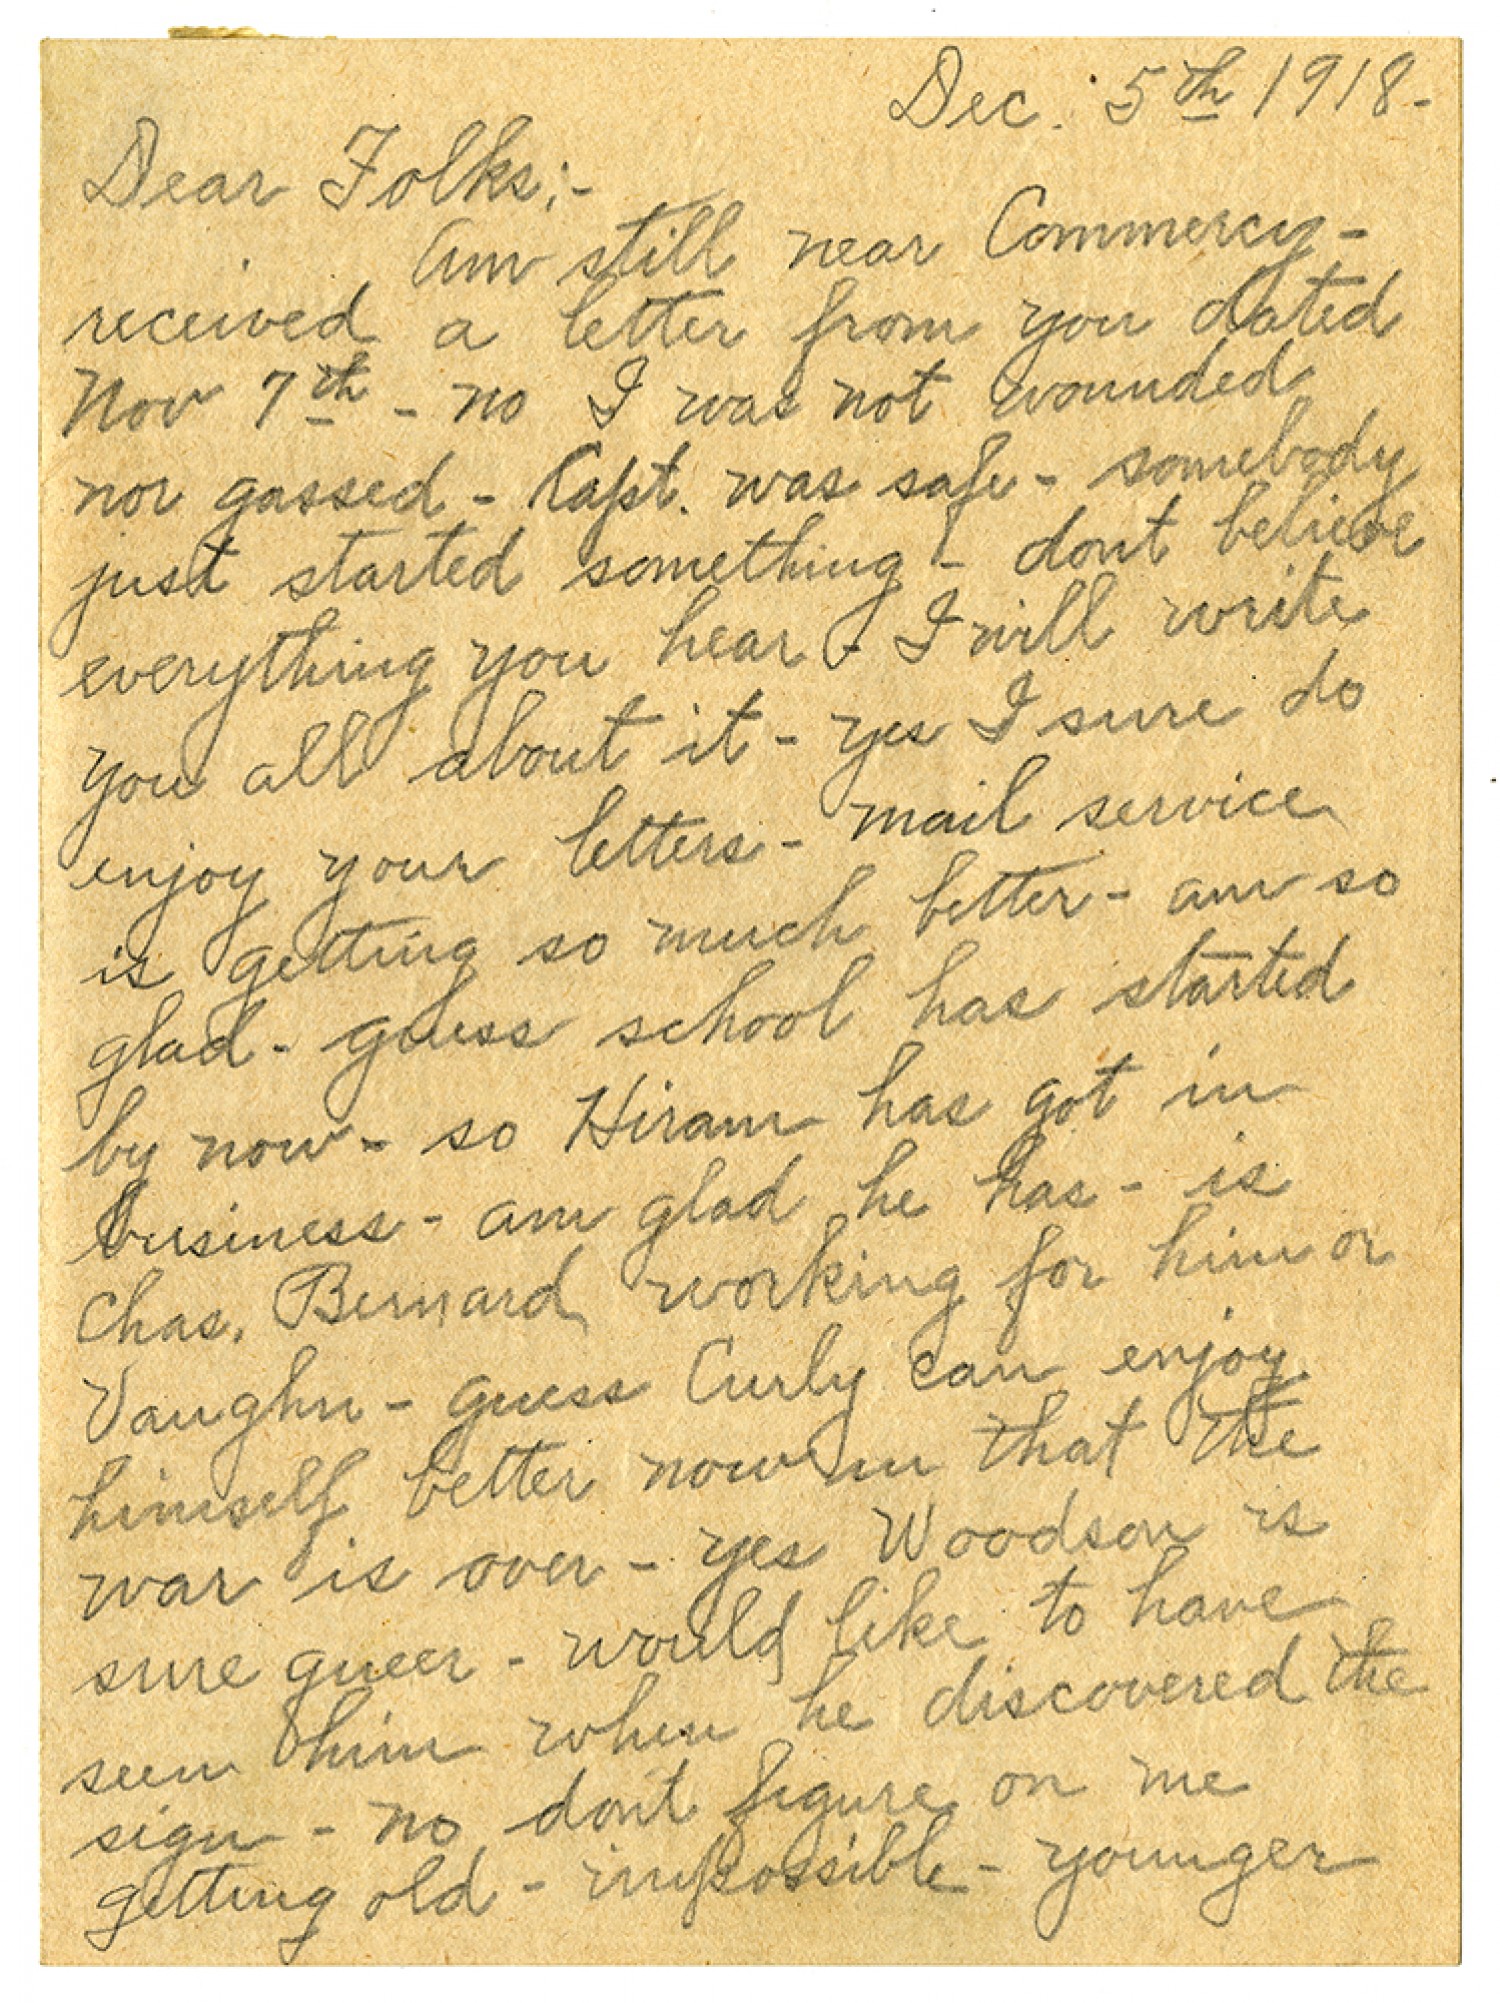 Dec. 5th 1918-
Dear Folks:-
Am still near Commercy-
received a letter from you dated
Nov 7th - no I was not wounded
nor gassed - Capt. was safe - somebody
just started something - dont believe
everything you hear - I will write
you all about it - yes I sure do
enjoy your letters - mail service
is getting so much better - am so
glad - guess school has started
by now - so Hiram has got in
business - am glad he has - is
Chas. Bernard working for him or
Vaughn - guess Curly can enjoy
himself better now in that the
war is over - yes Woodson is
sure queer - would like to have
seen him when he discovered the
sign - no dont figure on me
getting old - impossible - younger